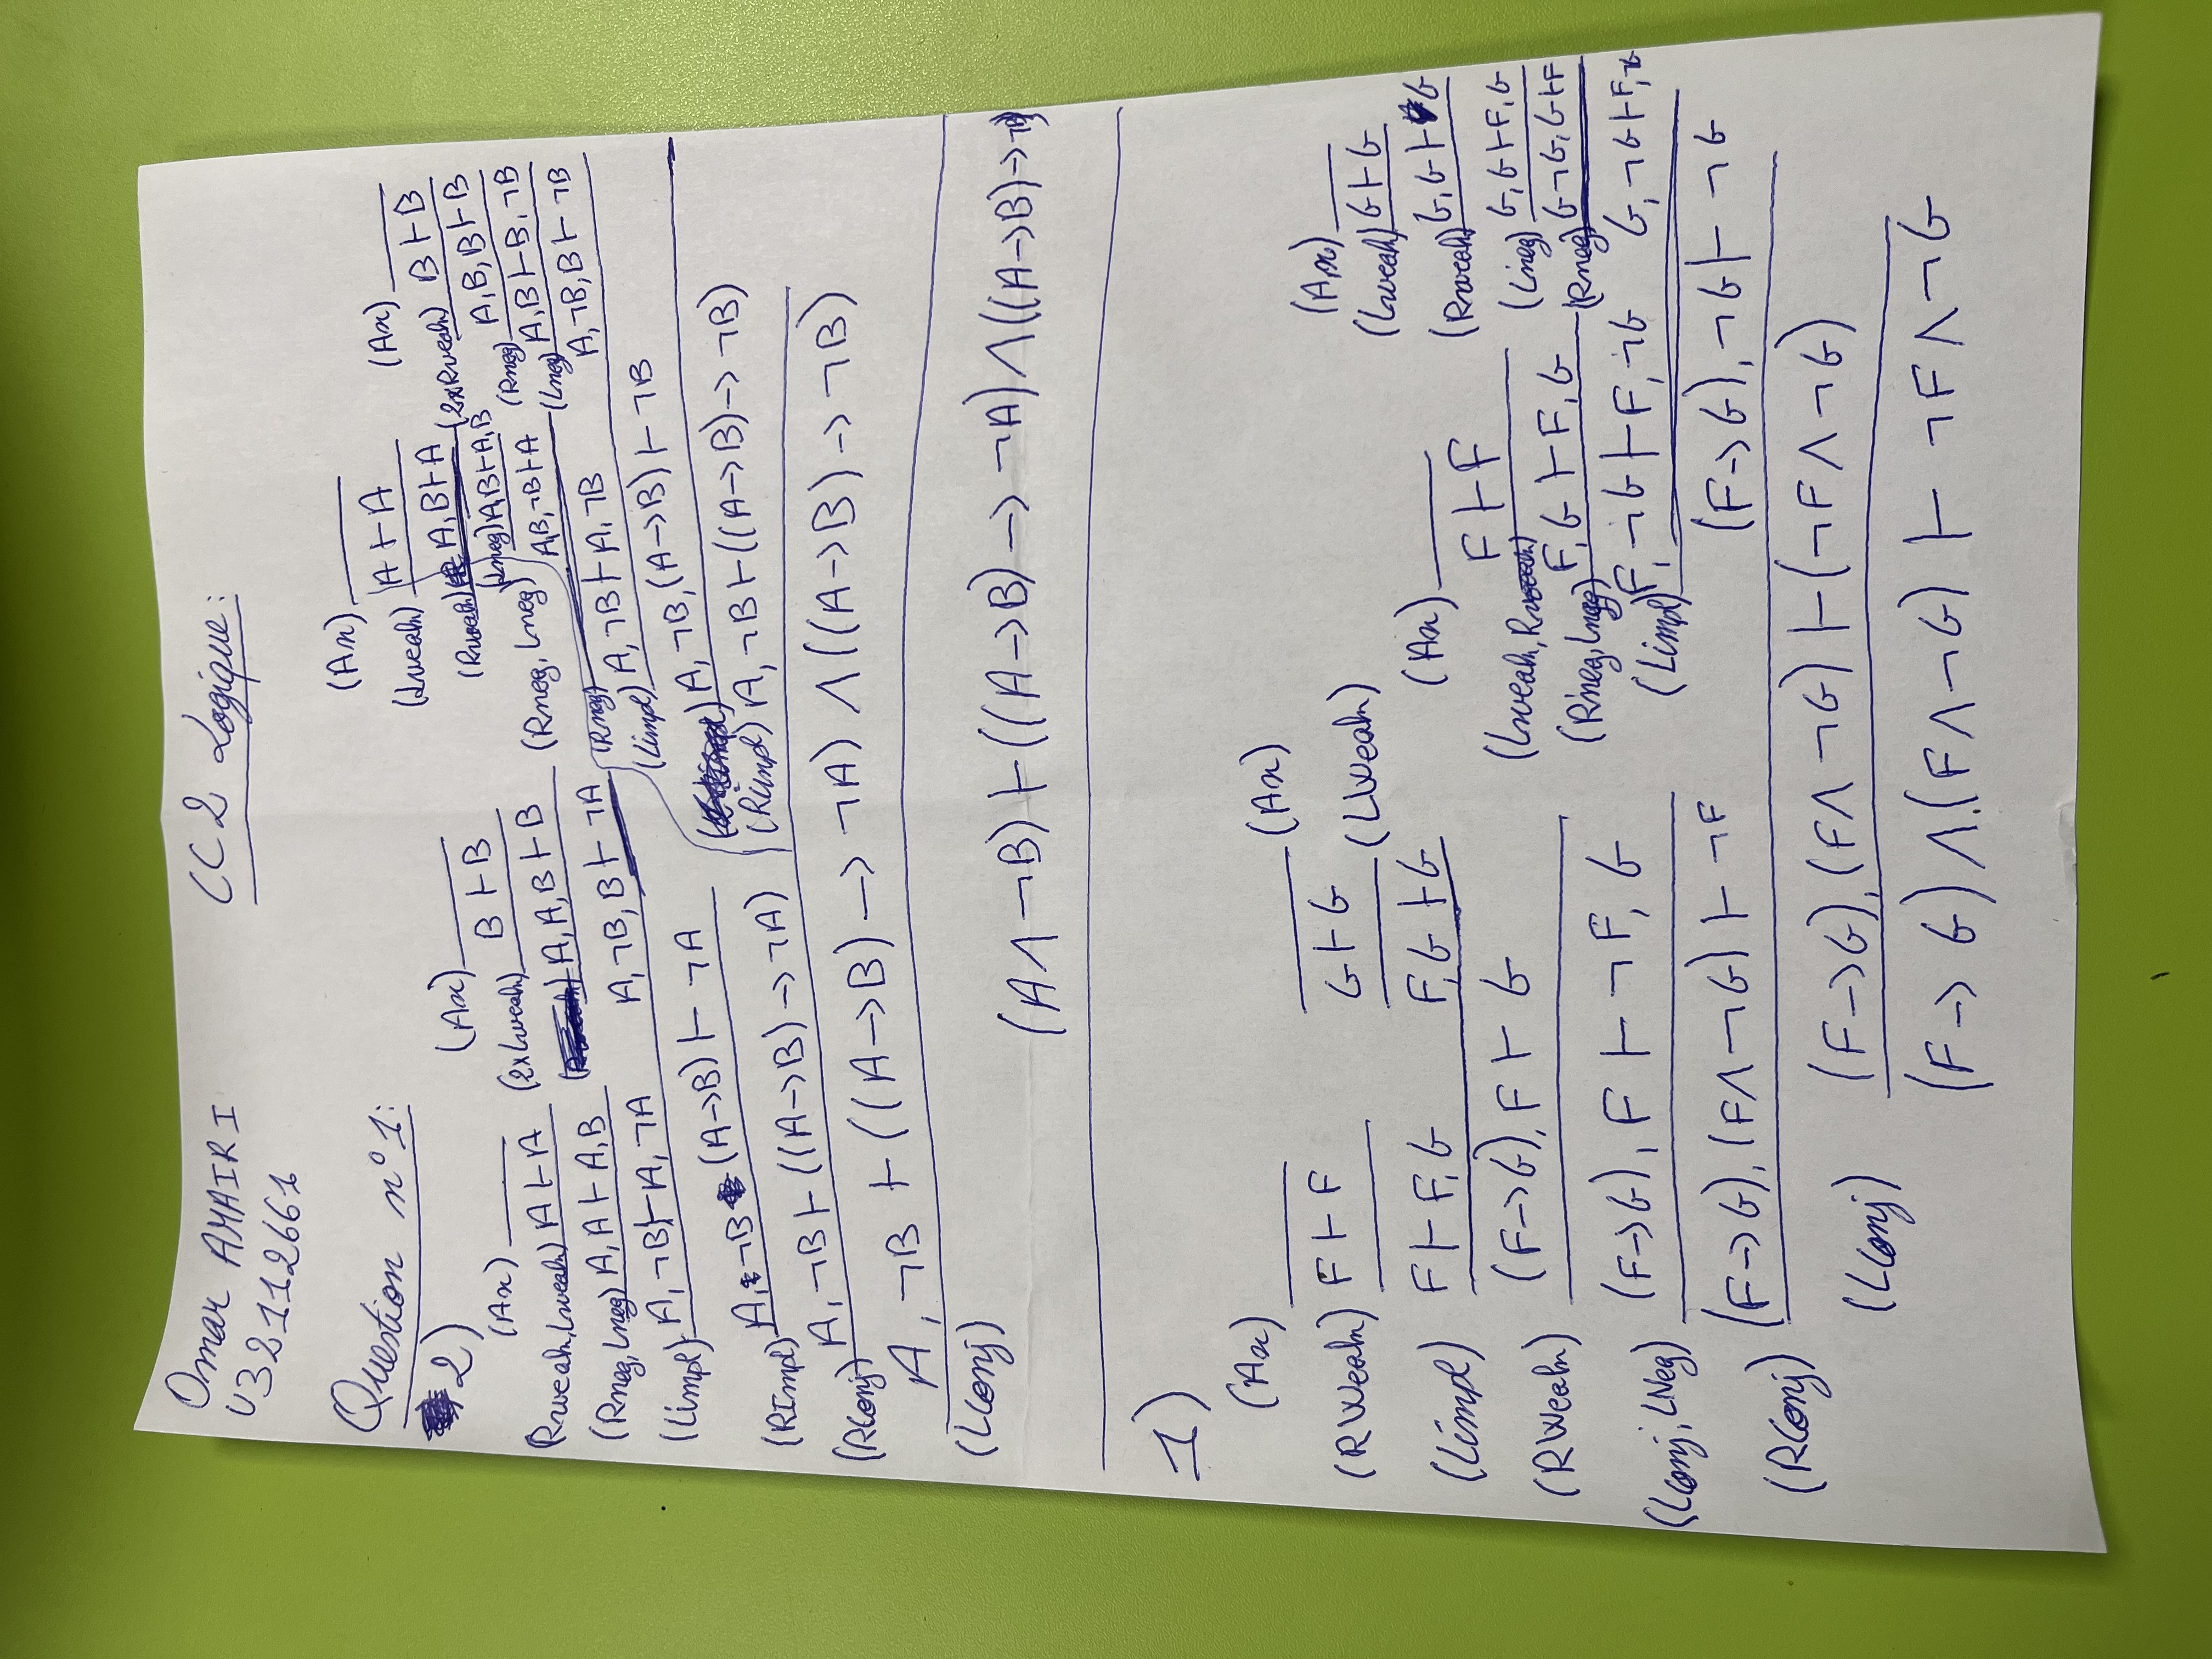 Omar AMAIRI
U32112661
CC2 Logique:
Question n°1:
2)
(Ax)
(Rweak, Lweak) A ⊢ A
(Rneg, Lneg) A, A ⊢ A, B
(Limpl) A, ¬B ⊢ A, ¬A
(Ax)
(2xLweak) B ⊢ B
A, A, B ⊢ B
A, ¬B, B ⊢ ¬A
(RImpl) A, ¬B (A→B) ⊢ ¬A
(RConj) A, ¬B ⊢ ((A→B) → ¬A)
(Ax)
(Lweak) A ⊢ A
(Rweak) A, B ⊢ A
(Lneg) A, B ⊢ A, B
(Rneg, Lneg) A, B, ¬B ⊢ A
(Rneg)
(Limpl) A, ¬B ⊢ A, ¬B
(Ax)
(2xRweak) B ⊢ B
(Rneg) A, B, B ⊢ B
(Lneg) A, B ⊢ B, ¬B
A, ¬B, B ⊢ ¬B
A, ¬B, (A→B) ⊢ ¬B
(RImpl) A, ¬B ⊢ ((A→B) → ¬B)
A, ¬B ⊢ ((A→B) → ¬A) ∧ ((A→B) → ¬B)
(LConj)
(A ∧ ¬B) ⊢ ((A→B) → ¬A) ∧ ((A→B) → ¬B)
1)
(Ax)
(RWeak) F ⊢ F
(Limpl) F ⊢ F, G
(Ax)
G ⊢ G (LWeak)
F, G ⊢ G
(RWeak) (F→G), F ⊢ G
(LConj, LNeg) (F→G), F ⊢ ¬F, G
(RConj) (F→G), (F ∧ ¬G) ⊢ ¬F
(Ax)
F ⊢ F
(Lweak, Rweak)
(Rneg, Lneg) F, G ⊢ F, G
(Limpl) F, ¬G ⊢ F, ¬G
(Ax)
(Lweak) G ⊢ G
(Rweak) G, G ⊢ G
(Lneg) G, G ⊢ F, G
(Rneg) G ¬G, G ⊢ F
G, ¬G ⊢ F, ¬G
(F→G), ¬G ⊢ ¬G
(LConj) (F→G), (F ∧ ¬G) ⊢ (¬F ∧ ¬G)
(F → G) ∧ (F ∧ ¬G) ⊢ ¬F ∧ ¬G